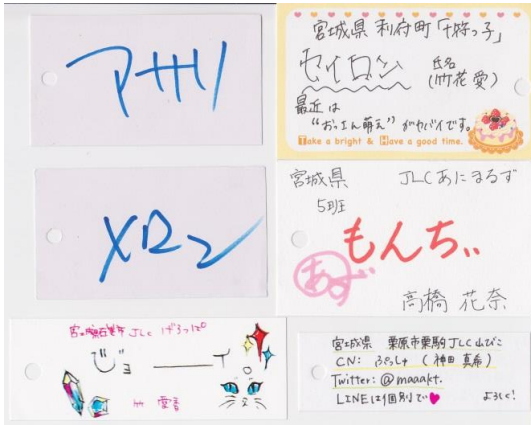 アサリ
宮城県 利府町「十符っ子」
セイロン 氏名
(竹花 愛)
最近は
"おっさん萌え"がヤバイです。
Take a bright & Have a good time.
宮城県 JLCあにまるず
5班
もんちぃ
あず
高橋 花奈
JLC げろっぱ
宮城県 栗原市栗駒JLC山びこ
CN: ぷっしゅ (神田 真希)
Twitter: @maaakt.
LINEは個別で♥ よろしく!